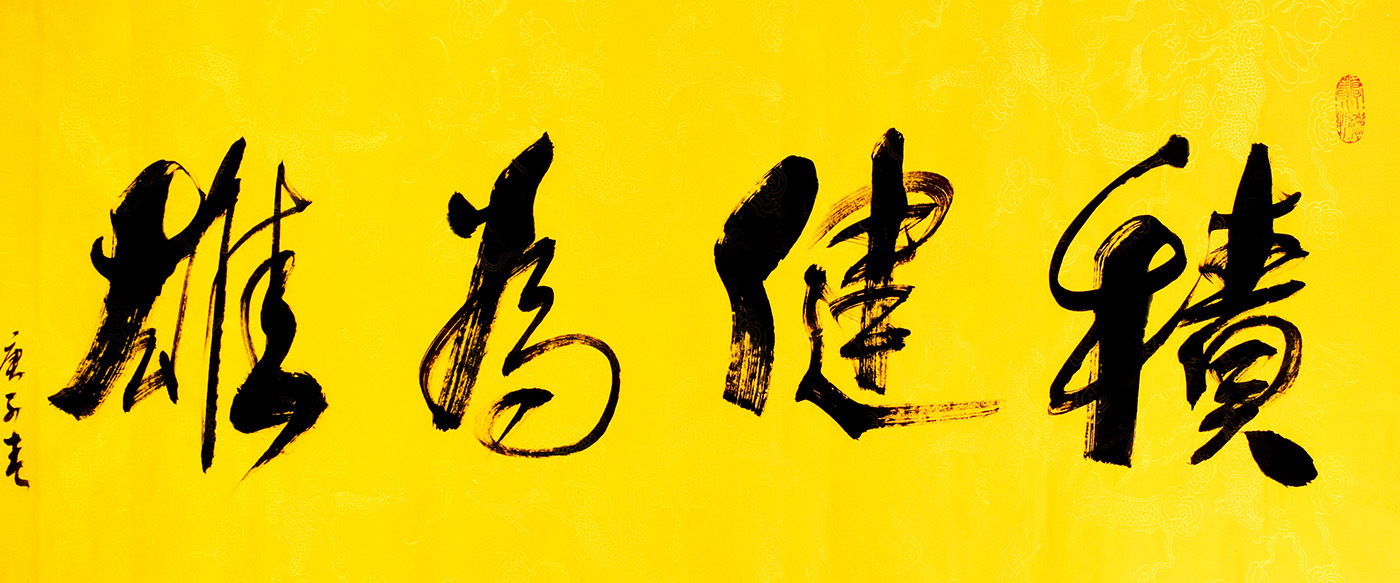 積健為雄
庚子春